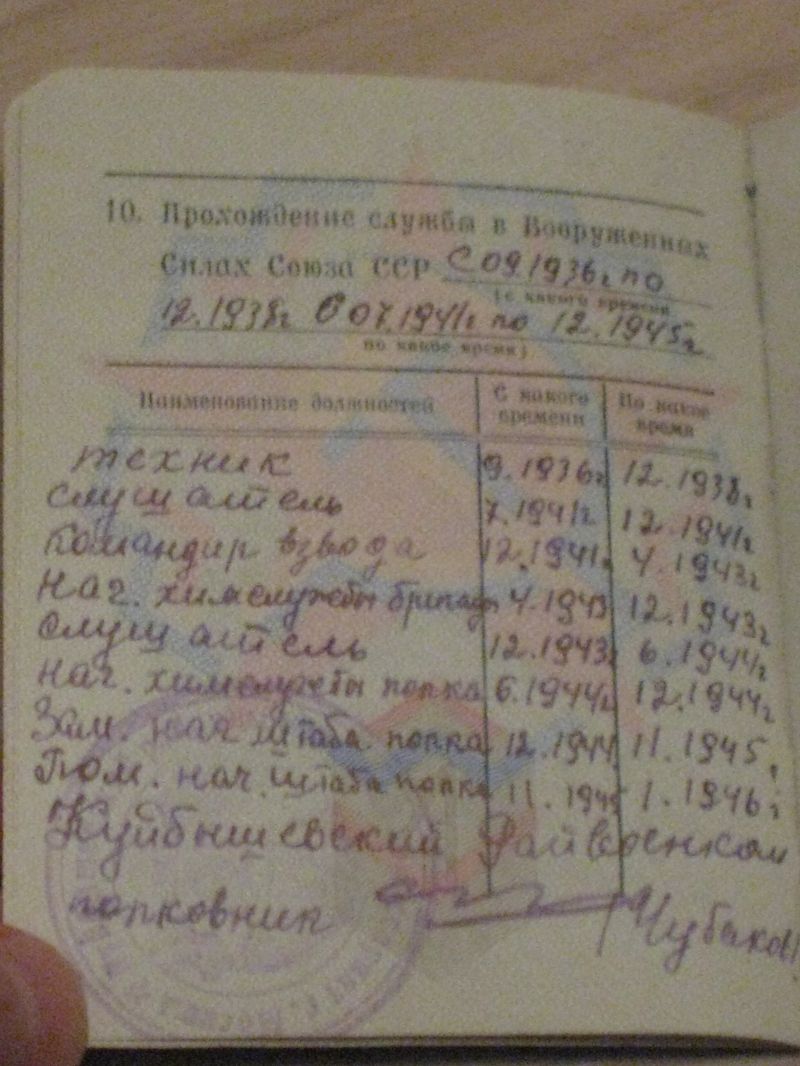 10. Прохождение службы в Вооруженных
Силах Союза ССР С 09.1936г по
(с какого времени
12.1938г С 07.1941г по 12.1945г
по какое время)
Наименование должностей С какого времени По какое время
техник 9.1936г 12.1938г
слушатель 7.1941г 12.1941г
командир взвода 12.1941г 4.1943г
нач. химслужбы бригады 4.1943 12.1943г
слушатель 12.1943г 6.1944г
нач. химслужбы полка 6.1944г 12.1944г
Зам. нач. штаба полка 12.1944 11.1945г
Пом. нач. штаба полка 11.1945 1.1946г
Куйбышевский Райвоенком
полковник Чубаков